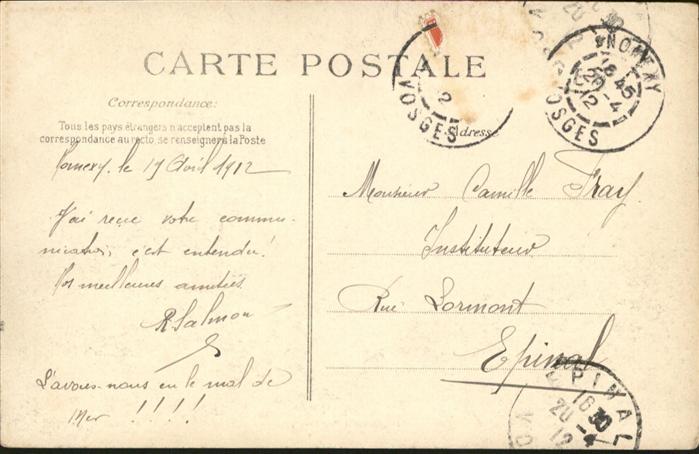 CARTE POSTALE
Correspondance:
Tous les pays étrangers n'acceptent pas la
correspondance au recto, se renseigner à la Poste
Adresse
Nomexy, le 19 Avril 1912
J'ai reçue votre commu-
nication, c'est entendu!
Nos meilleures amitiés
R. Salmon
L'avons-nous eu le mal de
mer !!!!
Monsieur Camille Fray
Instituteur
Rue Lormont
Epinal
NOMEXY
18 45
20 -4
12
VOSGES
12
VOSGES
EPINAL
16 30
20 -4
12